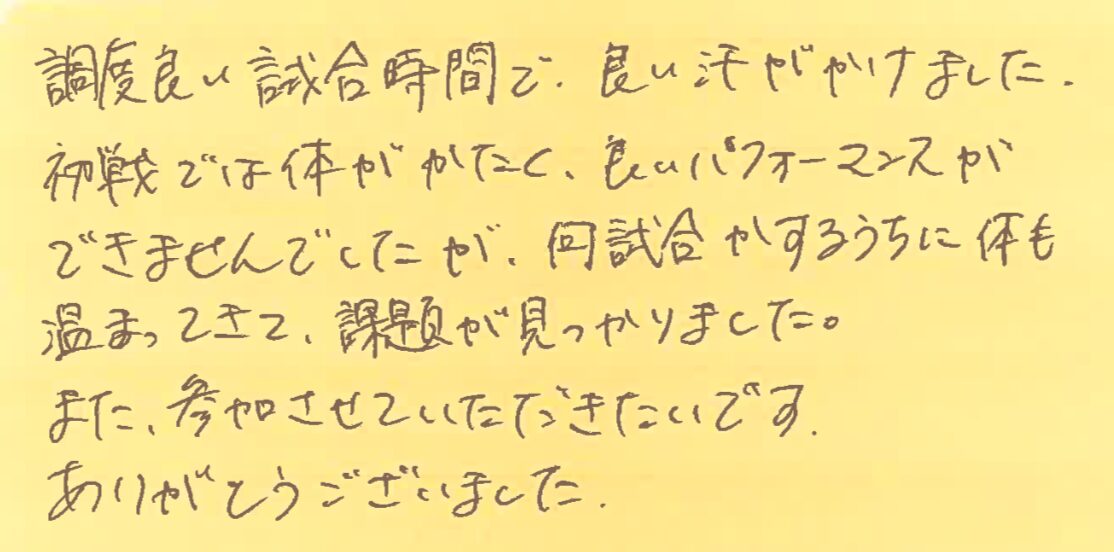 調度良い試合時間で、良い汗がかけました.
初戦では体がかたく、良いパフォーマンスが
できませんでしたが、何試合かするうちに体も
温まってきて、課題が見つかりました。
また、参加させていただきたいです.
ありがとうございました.